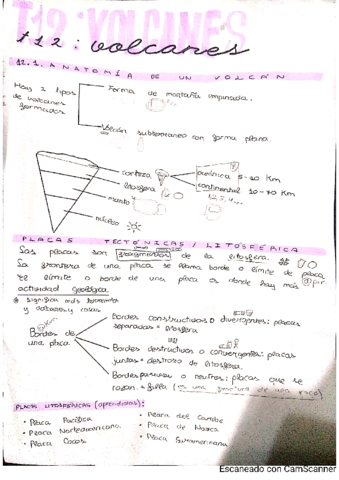 T12: VOLCANES
t12: volcanes
12.1. ANATOMÍA DE UN VOLCÁN
Hay 2 tipos
de volcanes
formados
Forma de montaña empinada.
Volcán subterraneo con forma plana.
corteza
oceánica 5-10 Km
continental 10-70 Km
litosfera
manto
núcleo
PLACAS TECTÓNICAS / LITOSFÉRICA
Las placas son fragmentos de la litosfera.
La frontera de una placa se llama borde o límite de placa
El límite o borde de una placa es donde hay más
actividad geológica.
significa más terremotos
y volcanes y cosas
Bordes de
una placa
Bordes constructivos o divergentes: placas
separadas = litosfera.
Bordes destructivos o convergentes: placas
juntas = destrozo de litosfera.
Bordes pasivos o neutros: placas que se
rozan = falla (es una fractura de una roca)
PLACAS LITOSFÉRICAS (aprendidas):
• Placa Pacífica
• Placa Norteamericana.
• Placa Cocos
• Placa del Caribe
• Placa de Nazca
• Placa Suramericana
Escaneado con CamScanner